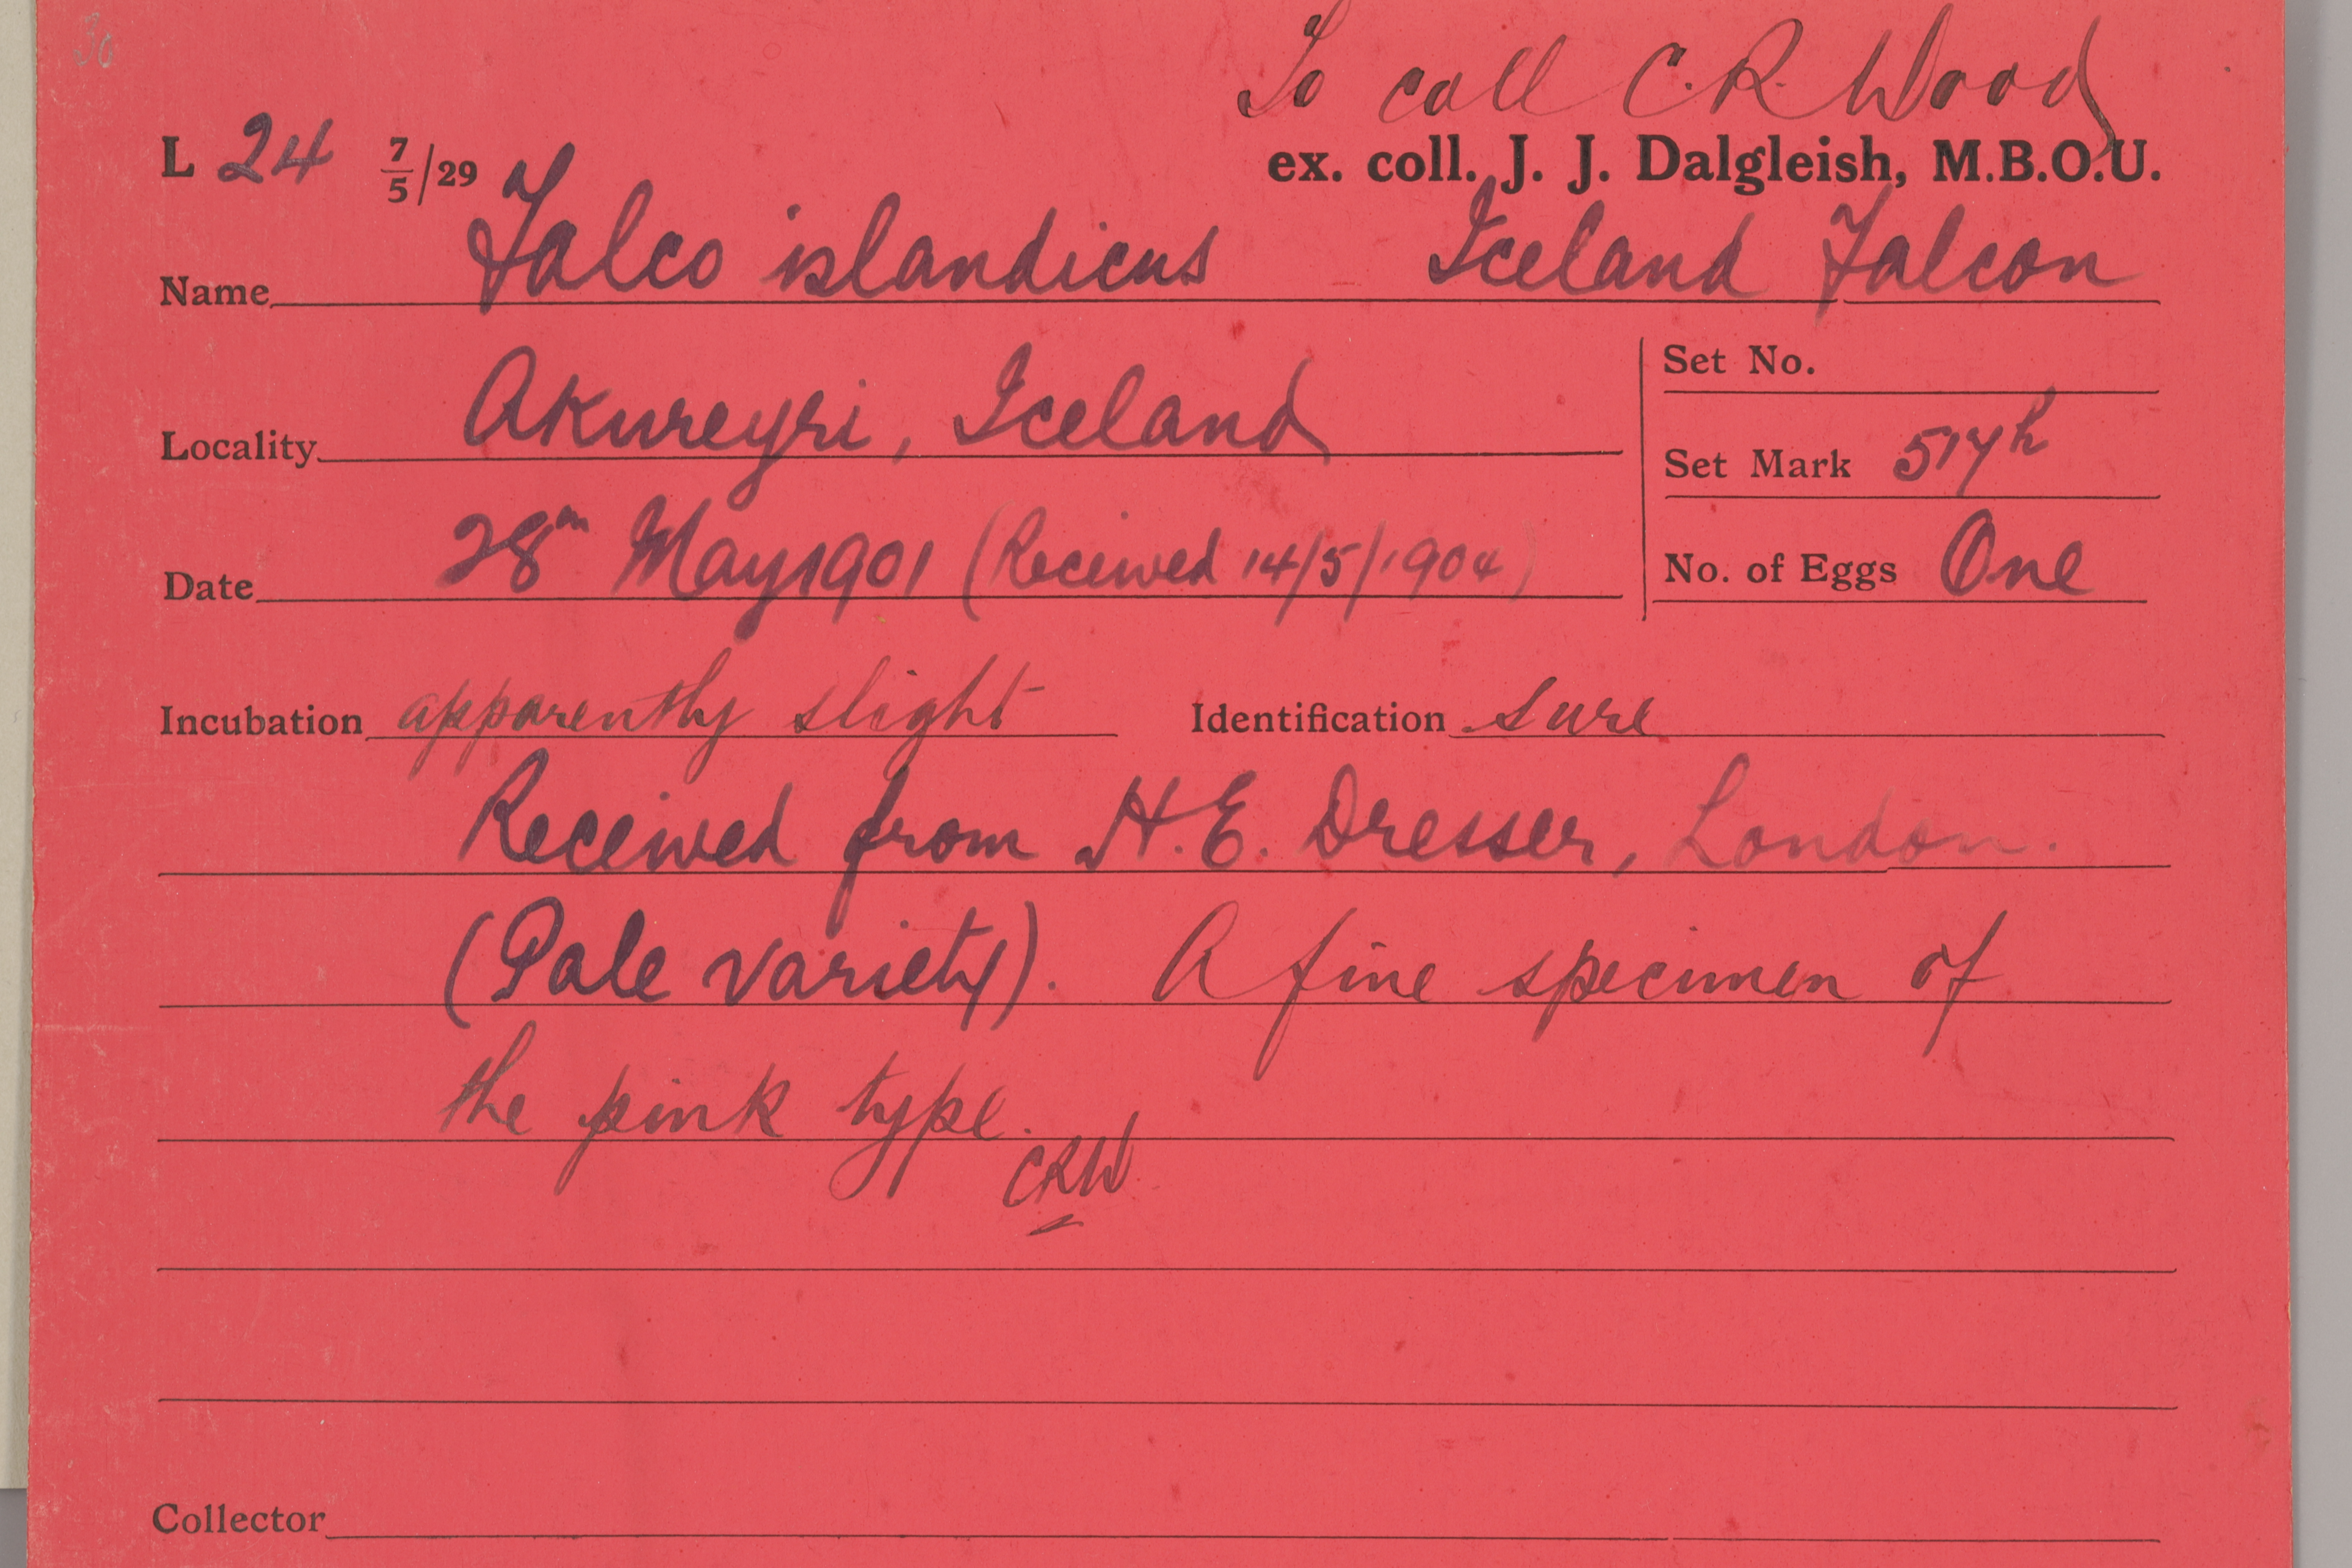 30
To coll C.R. Wood
L 24 7/5/29 ex. coll. J. J. Dalgleish, M.B.O.U.
Name Falco islandicus Iceland Falcon
Locality Akureyri, Iceland
Set No.
Set Mark 517h
Date 28th May 1901 (Received 14/5/1904)
No. of Eggs One
Incubation apparently slight Identification sure
Received from H.E. Dresser, London.
(Pale variety). A fine specimen of
the pink type.
CRW
Collector